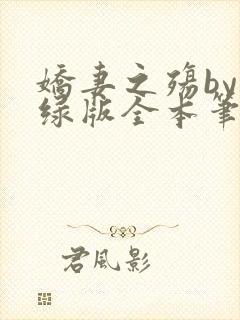 娇妻之殇by
绿版全本笔
君风影